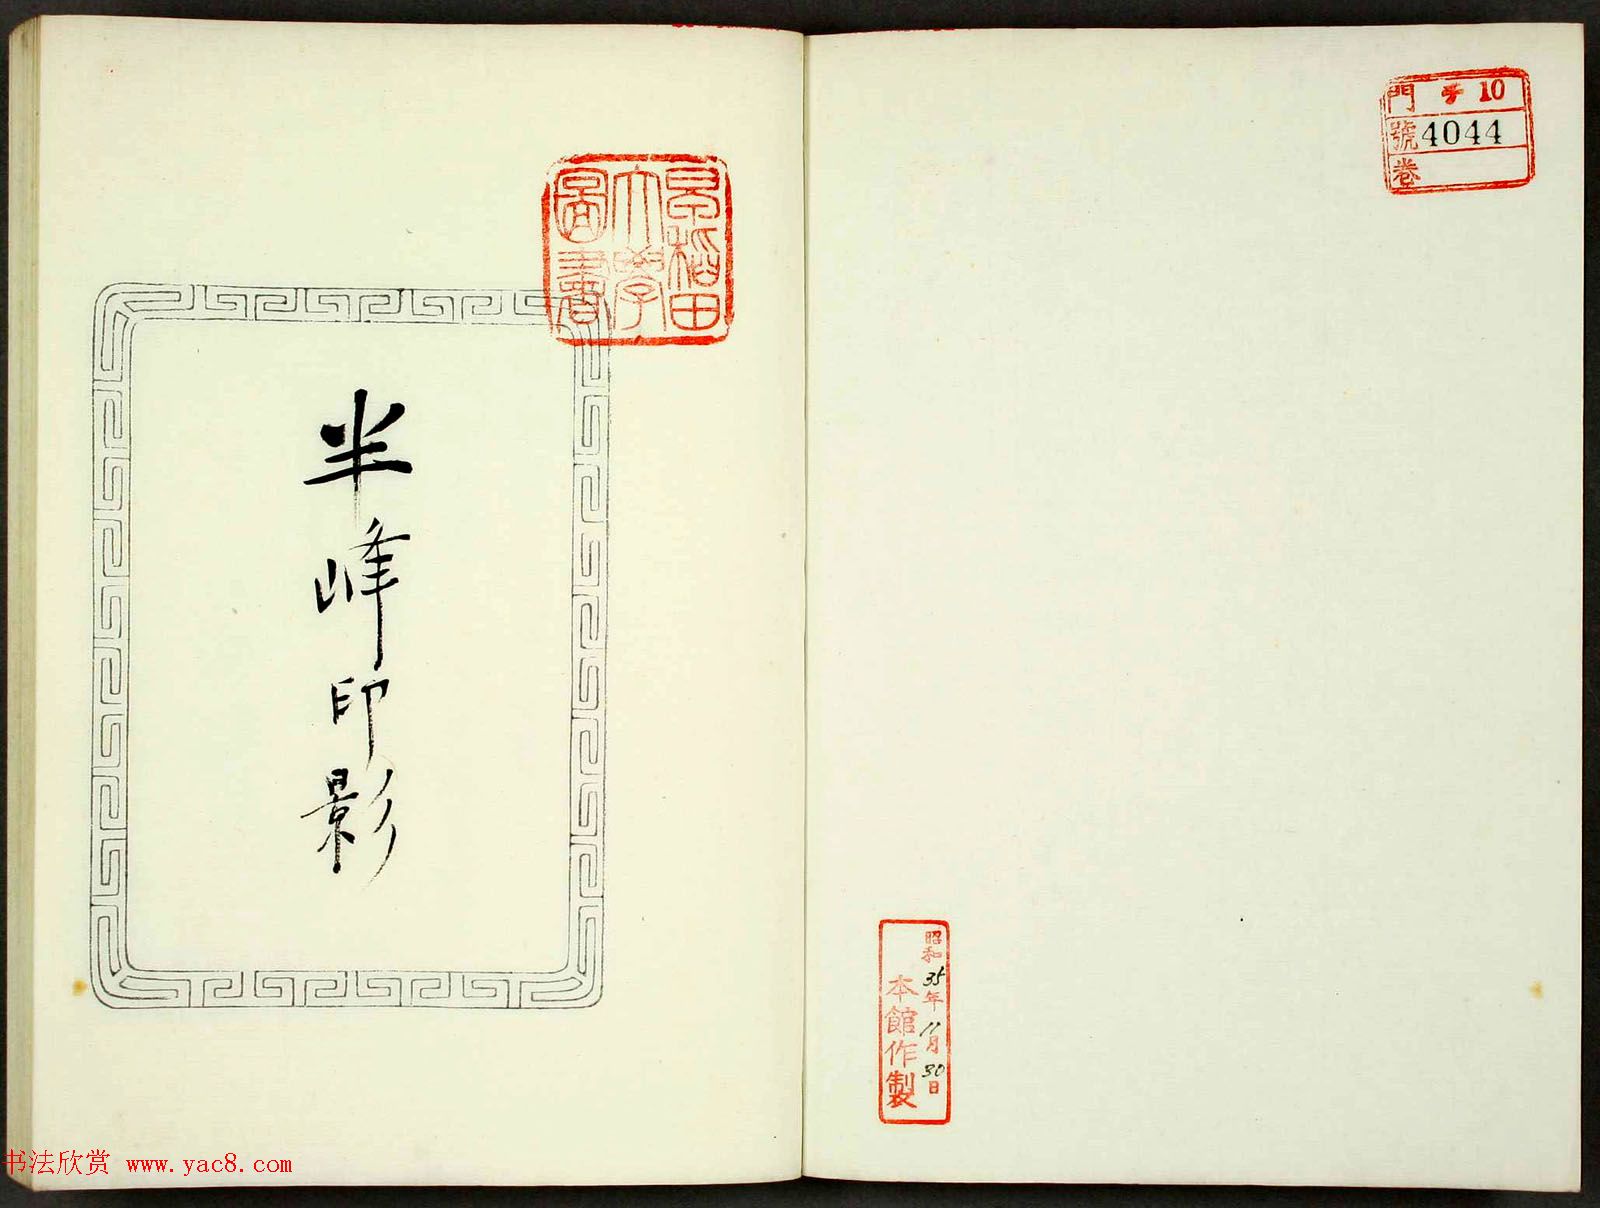 門 チ 10
號 4044
卷
昭和35年11月30日
本館作製
早稲田
大學
圖書
半峰印影
书法欣赏 www.yac8.com